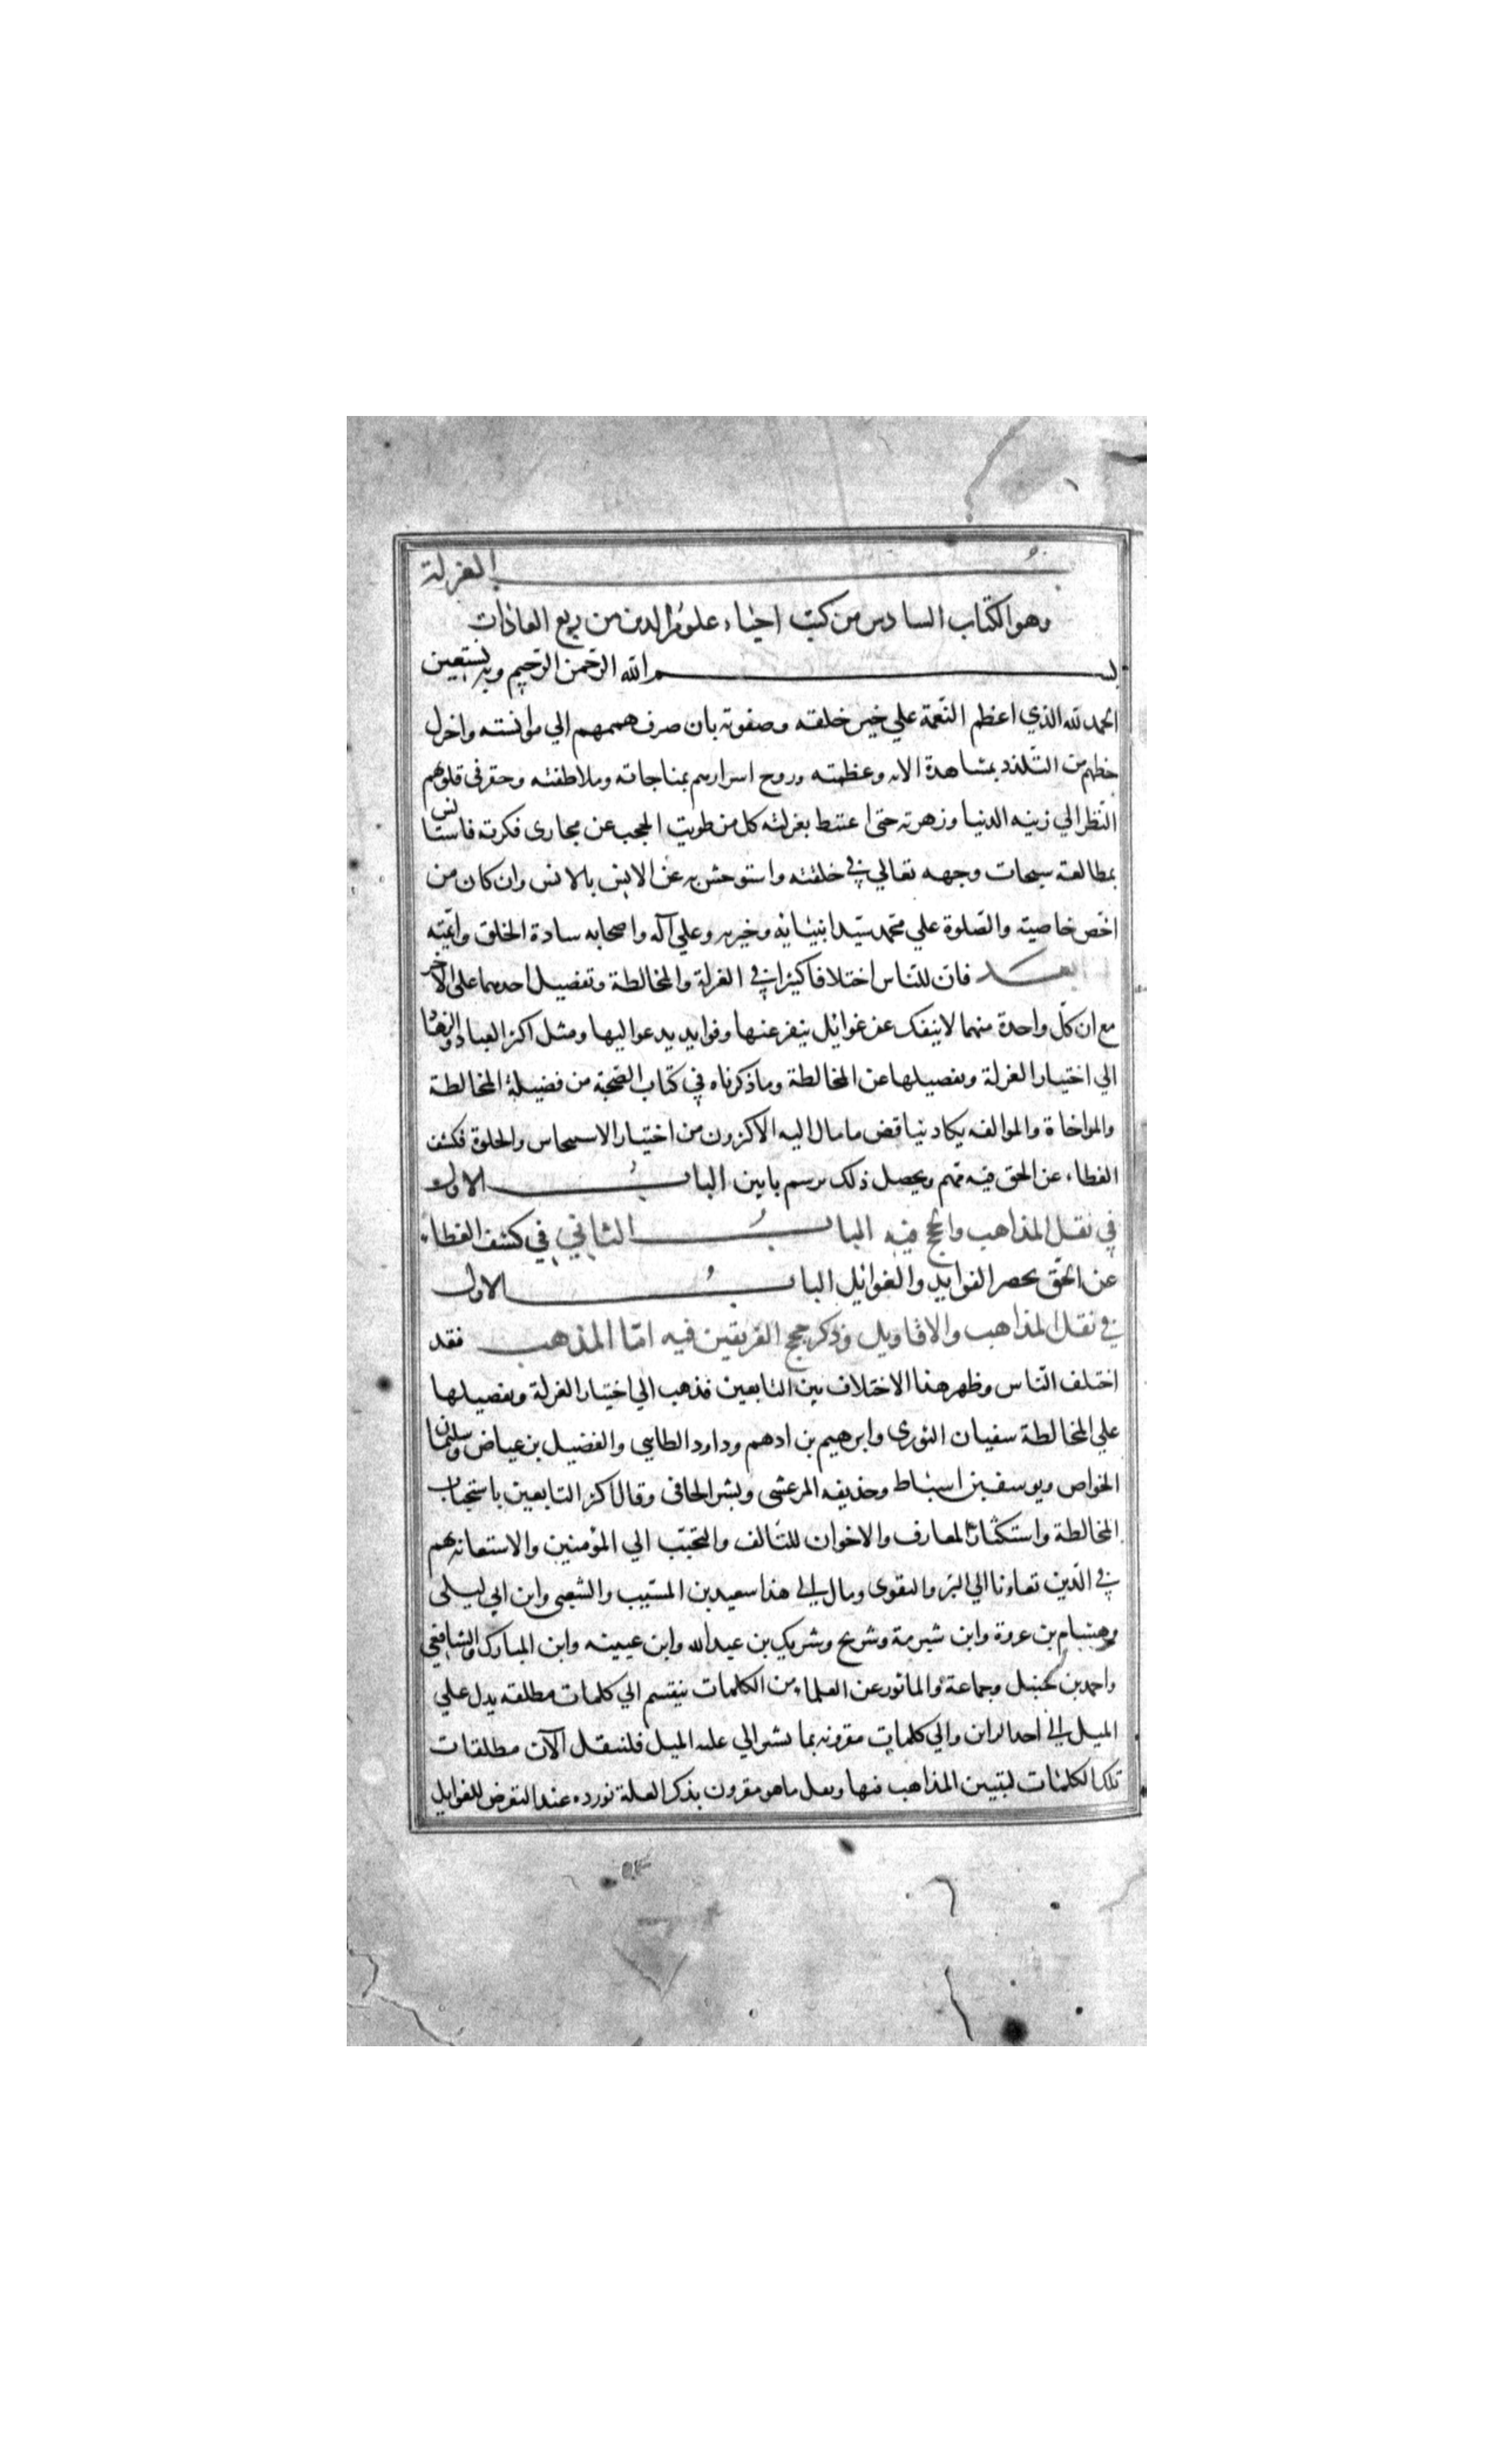 العزلة
وهو الكتاب السادس من كتب احياء علوم الدين من ربع العادات
بسم الله الرحمن الرحيم وبه نستعين
الحمد لله الذي اعظم النعمة علي خير خلقه وصفوته بان صرف هممهم الي موانسته واجزل
حظهم من التلذذ بمشاهدة الائه وعظمته وروح اسرارهم بمناجاته وملاطفته وحقر في قلوبهم
النظر الي زينه الدنيا وزهرته حتى اغتبط بعزلته كل من طويت الحجب عن مجارى فكرته فاستانس
بمطالعة سبحات وجهه تعالي في خلقته واستوحش به عن الانس بالانس وان كان من
اخص خاصيته والصلوة علي محمد سيد انبيائه وخيره وعلي آله واصحابه سادة الخلق وائمته
بعد فان للناس اختلافا كثيرا في العزلة والمخالطة وتفضيل احدهما على الاخر
مع ان كل واحدة منهما لا ينفك عن غوائل ينفر عنها وفوايد يدعو اليها ومثل اكثر العباد والزهاد
الي اختيار العزلة وتفضيلها عن المخالطة وما ذكرناه في كتاب الصحبة من فضيلة المخالطة
والمواخاة والموالفه يكاد يناقض ما مال اليه الاكثرون من اختيار الاستيحاش والخلوة فكشف
الغطاء عن الحق فيه مهم ويحصل ذلك برسم بابين الباب الاول
في نقل المذاهب والحجج فيه الباب الثاني في كشف الغطاء
عن الحق بحصر الفوايد والغوائل الباب الاول
في نقل المذاهب والاقاويل وذكر حجج الفريقين فيه اما المذهب فقد
اختلف الناس وظهر هذا الاختلاف بين التابعين فذهب الي اختيار العزلة وتفضيلها
علي المخالطة سفيان الثورى وابرهيم بن ادهم وداود الطايي والفضيل بن عياض وسليمان
الخواص ويوسف بن اسباط وحذيفه المرعشى وبشر الحافى وقال اكثر التابعين باستحباب
المخالطة واستكثار المعارف والاخوان للتالف والتحبب الي المؤمنين والاستعانة بهم
في الدين تعاونا الي البر والتقوى ومال الى هذا سعيد بن المسيب والشعبى وابن ابي ليلى
وهشام بن عروة وابن شبرمة وشريح وشريك بن عبد الله وابن عيينه وابن المبارك والشافعي
واحمد بن حنبل وجماعة والماثور عن العلماء من الكلمات ينقسم الي كلمات مطلقه يدل علي
الميل الى احد الراين والي كلمات مقرونه بما يشير الي علة الميل فلننقل الآن مطلقات
تلك الكلمات لتبيين المذاهب فيها ونقل ما هو مقرون بذكر العلة نورده عند التعرض للغوايل